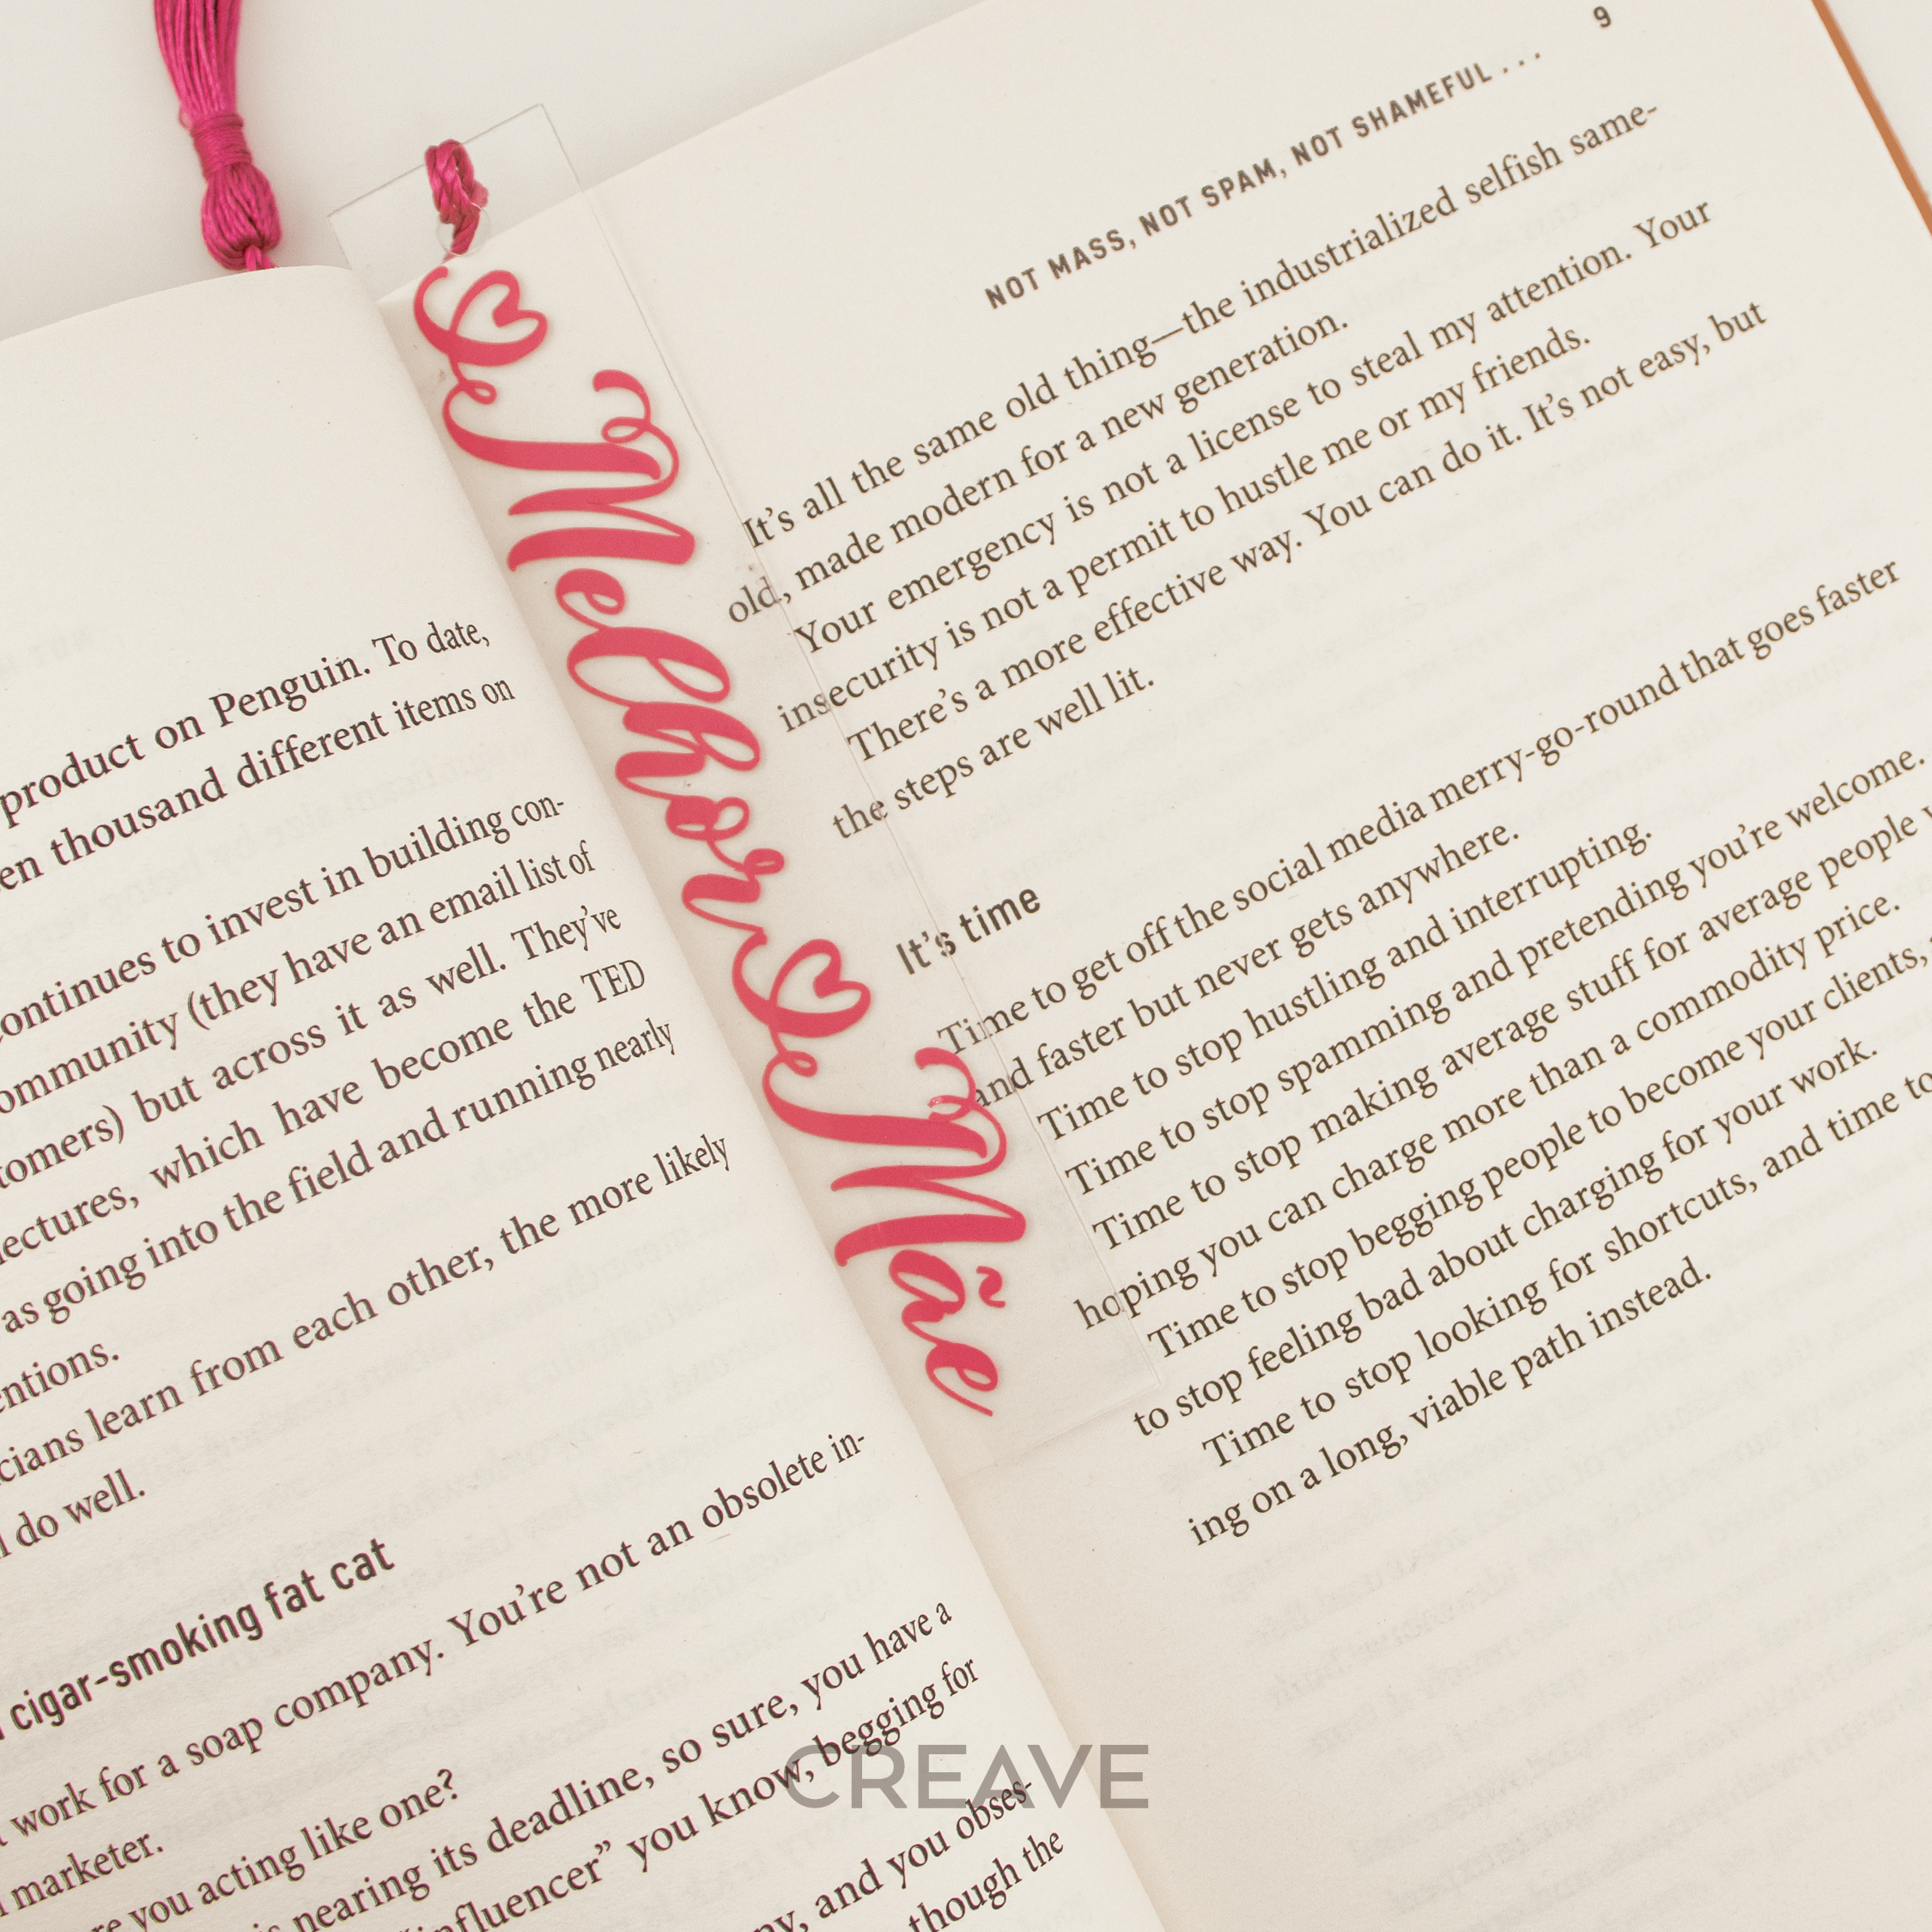 product on Penguin. To date,
thousand different items on
continues to invest in building con-
community (they have an email list of
but across it as well. They've
lectures, which have become the TED
as going into the field and running nearly
learn from each other, the more likely
do well.
cigar-smoking fat cat
work for a soap company. You're not an obsolete in-
marketer.
you acting like one?
nearing its deadline, so sure, you have a
influencer” you know, begging for
and you obses-
though the
Melhor Mãe
9
NOT MASS, NOT SPAM, NOT SHAMEFUL . . .
It's all the same old thing—the industrialized selfish same-
old, made modern for a new generation.
Your emergency is not a license to steal my attention. Your
insecurity is not a permit to hustle me or my friends.
There's a more effective way. You can do it. It's not easy, but
the steps are well lit.
It's time
Time to get off the social media merry-go-round that goes faster
and faster but never gets anywhere.
Time to stop hustling and interrupting.
Time to stop spamming and pretending you're welcome.
Time to stop making average stuff for average people
hoping you can charge more than a commodity price.
Time to stop begging people to become your clients,
to stop feeling bad about charging for your work.
Time to stop looking for shortcuts, and time to
ing on a long, viable path instead.
CREAVE